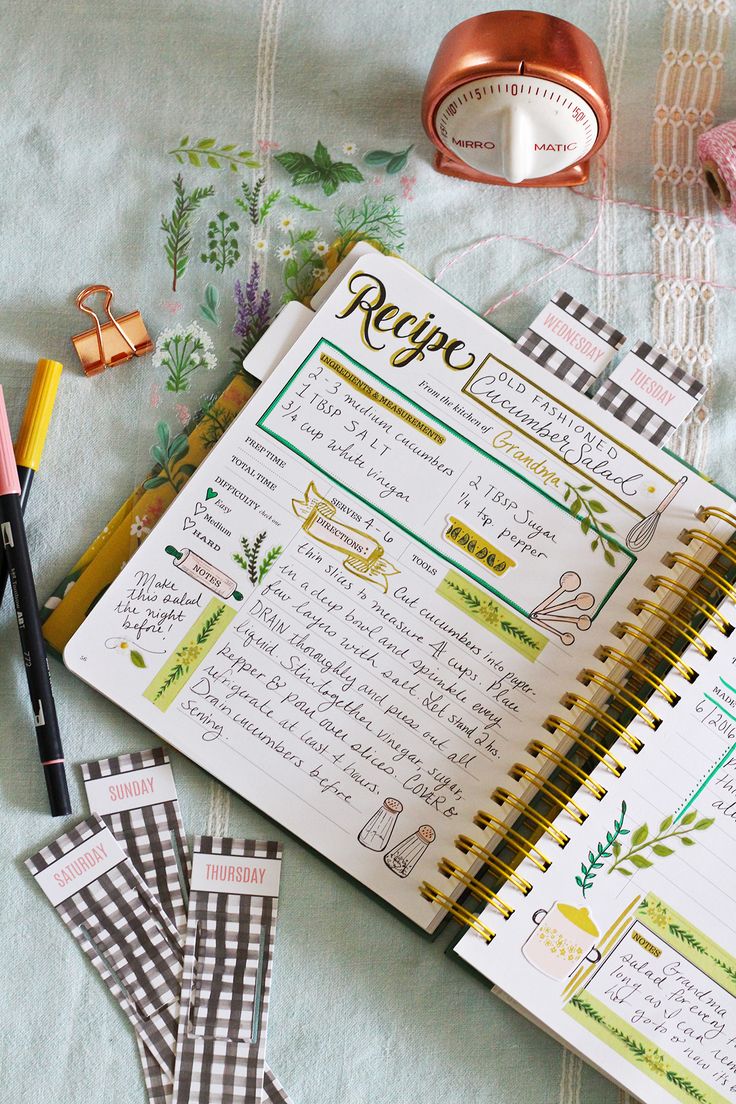 15 10 5 0 50
MIRRO MATIC
WEDNESDAY
TUESDAY
Recipe
OLD FASHIONED
Cucumber Salad
From the kitchen of Grandma
INGREDIENTS & MEASUREMENTS
2-3 medium cucumbers
1 TBSP SALT
3/4 cup white vinegar
2 TBSP Sugar
1/4 tsp. pepper
PREP TIME
TOTAL TIME
SERVES 4-6
DIFFICULTY check one
Easy
Medium
HARD
TOOLS
NOTES
Make
this salad
the night
before!
DIRECTIONS
Cut cucumbers into paper-
thin slices to measure 4 cups. Place
in a deep bowl and sprinkle every
few layers with salt. Let stand 2 hrs.
DRAIN thoroughly and press out all
liquid. Stir together vinegar, sugar,
pepper & pour over slices. COVER &
refrigerate at least 4 hours.
Drain cucumbers before
serving.
56
MADE
6/2016
NOTES
Grandma
salad for every
long as I can
her go-to & now it's
SUNDAY
SATURDAY
THURSDAY
ART
772